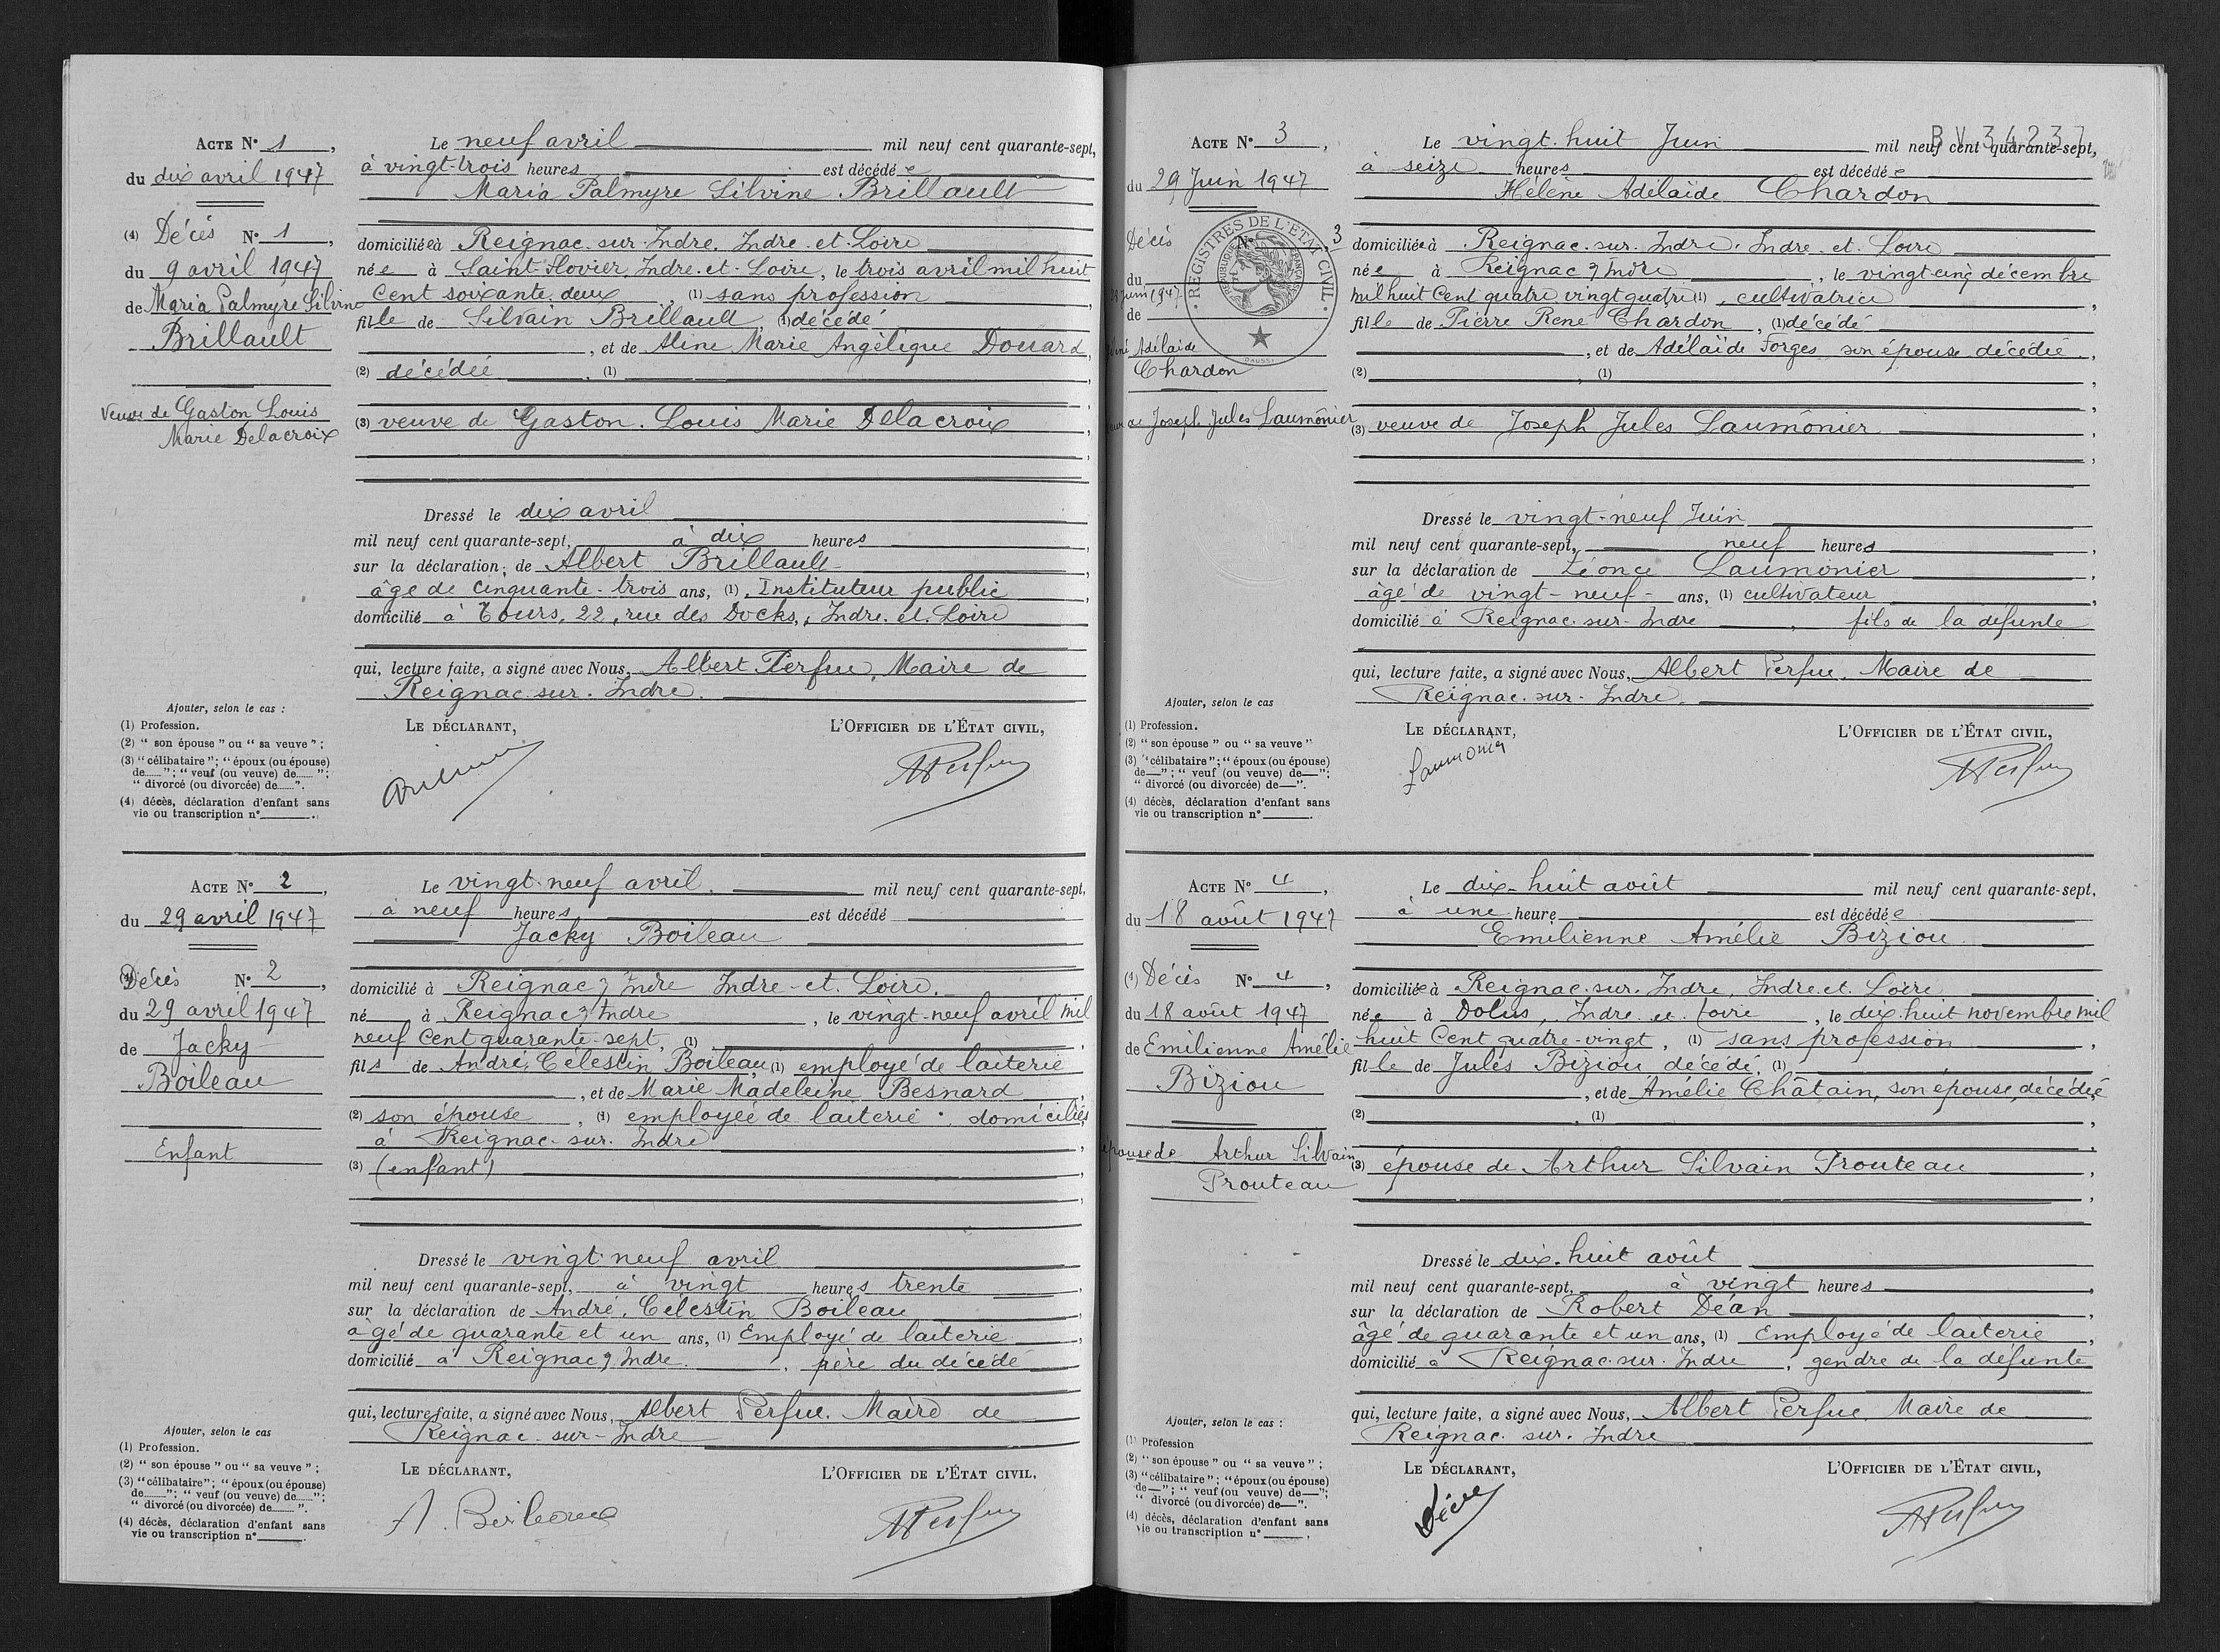 ACTE N° 1,
du dix avril 1947
(4) Décès N° 1,
du 9 avril 1947
de Maria Palmyre Silvine
Brillault
Veuve de Gaston Louis
Marie Delacroix
Le neuf avril mil neuf cent quarante-sept,
à vingt-trois heures est décédée
Maria Palmyre Silvine Brillault
domiciliée à Reignac-sur-Indre, Indre-et-Loire
née à Saint Flovier, Indre-et-Loire, le trois avril mil huit
cent soixante deux, (1) sans profession
fille de Silvain Brillault, (1) décédé
, et de Aline Marie Angélique Douard,
(2) décédée, (1)
(3) veuve de Gaston Louis Marie Delacroix
Dressé le dix avril
mil neuf cent quarante-sept, à dix heures
sur la déclaration de Albert Brillault
âgé de cinquante-trois ans, (1) Instituteur public
domicilié à Tours, 22, rue des Docks, Indre-et-Loire
qui, lecture faite, a signé avec Nous, Albert Perfue, Maire de
Reignac-sur-Indre.
Ajouter, selon le cas :
(1) Profession.
(2) “ son épouse ” ou “ sa veuve ” ;
(3) “ célibataire ” ; “ époux (ou épouse)
de...... ” ; “ veuf (ou veuve) de...... ” ;
“ divorcé (ou divorcée) de...... ”.
(4) décès, déclaration d'enfant sans
vie ou transcription n° .
LE DÉCLARANT, L'OFFICIER DE L'ÉTAT CIVIL,
APerfue
ACTE N° 2,
du 29 avril 1947
(4) Décès N° 2,
du 29 avril 1947
de Jacky
Boileau
Enfant
Le vingt-neuf avril mil neuf cent quarante-sept,
à neuf heures est décédé
Jacky Boileau
domicilié à Reignac s/ Indre Indre-et-Loire.
né à Reignac s/ Indre, le vingt-neuf avril mil
neuf cent quarante-sept, (1)
fils de André, Célestin Boileau, (1) employé de laiterie
, et de Marie Madeleine Besnard
(2) son épouse, (1) employée de laiterie ; domiciliés
à Reignac-sur-Indre
(3) (enfant)
Dressé le vingt-neuf avril
mil neuf cent quarante-sept, à vingt heures trente
sur la déclaration de André, Célestin Boileau
âgé de quarante et un ans, (1) Employé de laiterie
domicilié à Reignac s/ Indre, père du décédé
qui, lecture faite, a signé avec Nous, Albert Perfue, Maire de
Reignac-sur-Indre
Ajouter, selon le cas
(1) Profession.
(2) “ son épouse ” ou “ sa veuve ” ;
(3) “ célibataire ” ; “ époux (ou épouse)
de...... ” ; “ veuf (ou veuve) de...... ” ;
“ divorcé (ou divorcée) de...... ”.
(4) décès, déclaration d'enfant sans
vie ou transcription n° .
LE DÉCLARANT, L'OFFICIER DE L'ÉTAT CIVIL,
A. Boileau APerfue
BV 34237
ACTE N° 3,
du 29 Juin 1947
Décès N° 3
du
Juin 1947
de
Adélaïde
Chardon
de Joseph Jules Laumônier
REGISTRES DE L'ÉTAT CIVIL
RÉPUBLIQUE FRANÇAISE
DAUSSY
Le vingt-huit Juin mil neuf cent quarante-sept,
à seize heures est décédée
Hélène Adélaïde Chardon
domiciliée à Reignac-sur-Indre, Indre-et-Loire
née à Reignac s/ Indre, le vingt-cinq décembre
mil huit cent quatre vingt quatre (1), cultivatrice
fille de Pierre René Chardon, (1) décédé
, et de Adélaïde Forges son épouse décédée,
(2) , (1)
(3) veuve de Joseph Jules Laumônier
Dressé le vingt-neuf Juin
mil neuf cent quarante-sept, neuf heures
sur la déclaration de Léonce Laumonier
âgé de vingt-neuf ans, (1) cultivateur
domicilié à Reignac-sur-Indre, fils de la défunte
qui, lecture faite, a signé avec Nous, Albert Perfue, Maire de
Reignac-sur-Indre.
Ajouter, selon le cas
(1) Profession.
(2) “ son épouse ” ou “ sa veuve ”
(3) “ célibataire ” ; “ époux (ou épouse)
de— ” ; “ veuf (ou veuve) de— ” ;
“ divorcé (ou divorcée) de— ”.
(4) décès, déclaration d'enfant sans
vie ou transcription n° .
LE DÉCLARANT, L'OFFICIER DE L'ÉTAT CIVIL,
Laumonier APerfue
ACTE N° 4,
du 18 août 1947
(4) Décès N° 4,
du 18 août 1947
de Emilienne Amélie
Biziou
épouse de Arthur Silvain
Prouteau
Le dix-huit août mil neuf cent quarante-sept,
à une heure est décédée
Emilienne Amélie Biziou
domiciliée à Reignac-sur-Indre, Indre-et-Loire
née à Dolus, Indre-et-Loire, le dix-huit novembre mil
huit cent quatre-vingt, (1) sans profession
fille de Jules Biziou décédé, (1)
, et de Amélie Châtain, son épouse, décédée
(2) , (1)
(3) épouse de Arthur Silvain Prouteau
Dressé le dix-huit août
mil neuf cent quarante-sept, à vingt heures
sur la déclaration de Robert Déan
âgé de quarante et un ans, (1) Employé de laiterie
domicilié à Reignac-sur-Indre, gendre de la défunte
qui, lecture faite, a signé avec Nous, Albert Perfue, Maire de
Reignac-sur-Indre
Ajouter, selon le cas :
(1) Profession
(2) “ son épouse ” ou “ sa veuve ” ;
(3) “ célibataire ” ; “ époux (ou épouse)
de— ” ; “ veuf (ou veuve) de— ” ;
“ divorcé (ou divorcée) de— ”.
(4) décès, déclaration d'enfant sans
vie ou transcription n° .
LE DÉCLARANT, L'OFFICIER DE L'ÉTAT CIVIL,
APerfue